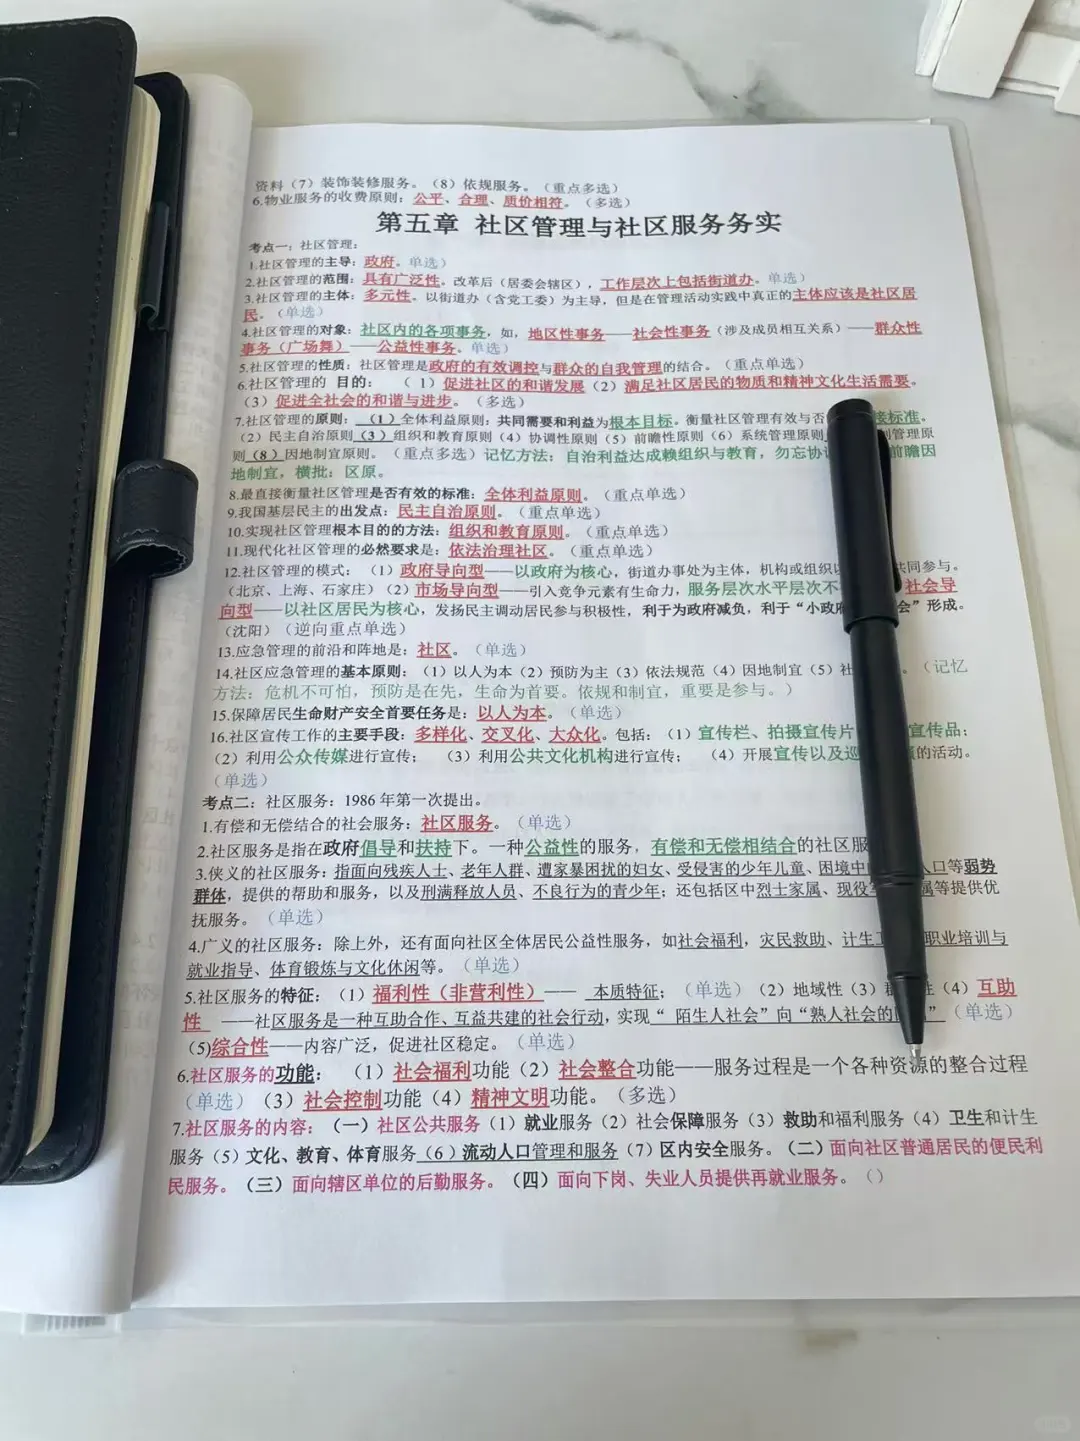 资料（7）装饰装修服务。（8）依规服务。（重点多选）
6.物业服务的收费原则：公平、合理、质价相符。（多选）
第五章 社区管理与社区服务务实
考点一：社区管理：
1.社区管理的主导：政府。单选）
2.社区管理的范围：具有广泛性。改革后（居委会辖区），工作层次上包括街道办。单选）
3.社区管理的主体：多元性。以街道办（含党工委）为主导，但是在管理活动实践中真正的主体应该是社区居
民。（单选）
4.社区管理的对象：社区内的各项事务，如，地区性事务——社会性事务（涉及成员相互关系）——群众性
事务（广场舞）——公益性事务。单选）
5.社区管理的性质：社区管理是政府的有效调控与群众的自我管理的结合。（重点单选）
6.社区管理的 目的：（1）促进社区的和谐发展（2）满足社区居民的物质和精神文化生活需要。
（3）促进全社会的和谐与进步。（多选）
7.社区管理的原则：（1）全体利益原则：共同需要和利益为根本目标。衡量社区管理有效与否 接标准。
（2）民主自治原则（3）组织和教育原则（4）协调性原则（5）前瞻性原则（6）系统管理原则 管理原
则（8）因地制宜原则。（重点多选）记忆方法：自治利益达成赖组织与教育，勿忘协 前瞻因
地制宜，横批：区原。
8.最直接衡量社区管理是否有效的标准：全体利益原则。（重点单选）
9.我国基层民主的出发点：民主自治原则。（重点单选）
10.实现社区管理根本目的的方法：组织和教育原则。（重点单选）
11.现代化社区管理的必然要求是：依法治理社区。（重点单选）
12.社区管理的模式：（1）政府导向型——以政府为核心，街道办事处为主体，机构或组织 共同参与。
（北京、上海、石家庄）（2）市场导向型——引入竞争元素有生命力，服务层次水平层次不 社会导
向型——以社区居民为核心，发扬民主调动居民参与积极性，利于为政府减负，利于“小政府 会”形成。
（沈阳）（逆向重点单选）
13.应急管理的前沿和阵地是：社区。（单选）
14.社区应急管理的基本原则：（1）以人为本（2）预防为主（3）依法规范（4）因地制宜（5）社 。（记忆
方法：危机不可怕，预防是在先，生命为首要。依规和制宜，重要是参与。）
15.保障居民生命财产安全首要任务是：以人为本。（单选）
16.社区宣传工作的主要手段：多样化、交叉化、大众化。包括：（1）宣传栏、拍摄宣传片 宣传品；
（2）利用公众传媒进行宣传；（3）利用公共文化机构进行宣传；（4）开展宣传以及 的活动。
（单选）
考点二：社区服务：1986 年第一次提出。
1.有偿和无偿结合的社会服务：社区服务。（单选）
2.社区服务是指在政府倡导和扶持下。一种公益性的服务，有偿和无偿相结合的社区服
3.狭义的社区服务：指面向残疾人士、老年人群、遭家暴困扰的妇女、受侵害的少年儿童、困境中 人口等弱势
群体，提供的帮助和服务，以及刑满释放人员、不良行为的青少年；还包括区中烈士家属、现役 属等提供优
抚服务。（单选）
4.广义的社区服务：除上外，还有面向社区全体居民公益性服务，如社会福利，灾民救助、计生 职业培训与
就业指导、体育锻炼与文化休闲等。（单选）
5.社区服务的特征：（1）福利性（非营利性）—— 本质特征；（单选）（2）地域性（3） 性（4）互助
性 ——社区服务是一种互助合作、互益共建的社会行动，实现“ 陌生人社会”向“熟人社会的 ”（单选）
（5)综合性——内容广泛，促进社区稳定。（单选）
6.社区服务的功能：（1）社会福利功能（2）社会整合功能——服务过程是一个各种资源的整合过程
（单选）（3）社会控制功能（4）精神文明功能。（多选）
7.社区服务的内容：（一）社区公共服务（1）就业服务（2）社会保障服务（3）救助和福利服务（4）卫生和计生
服务（5）文化、教育、体育服务（6）流动人口管理和服务（7）区内安全服务。（二）面向社区普通居民的便民利
民服务。（三）面向辖区单位的后勤服务。（四）面向下岗、失业人员提供再就业服务。（）